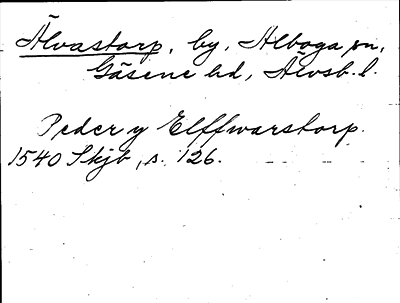 Älvastorp, by, Alboga sn,
Gäsene hd, Älvsb. l.
Peder y Elffwarstorp.
1540 Skjb, s. 126.